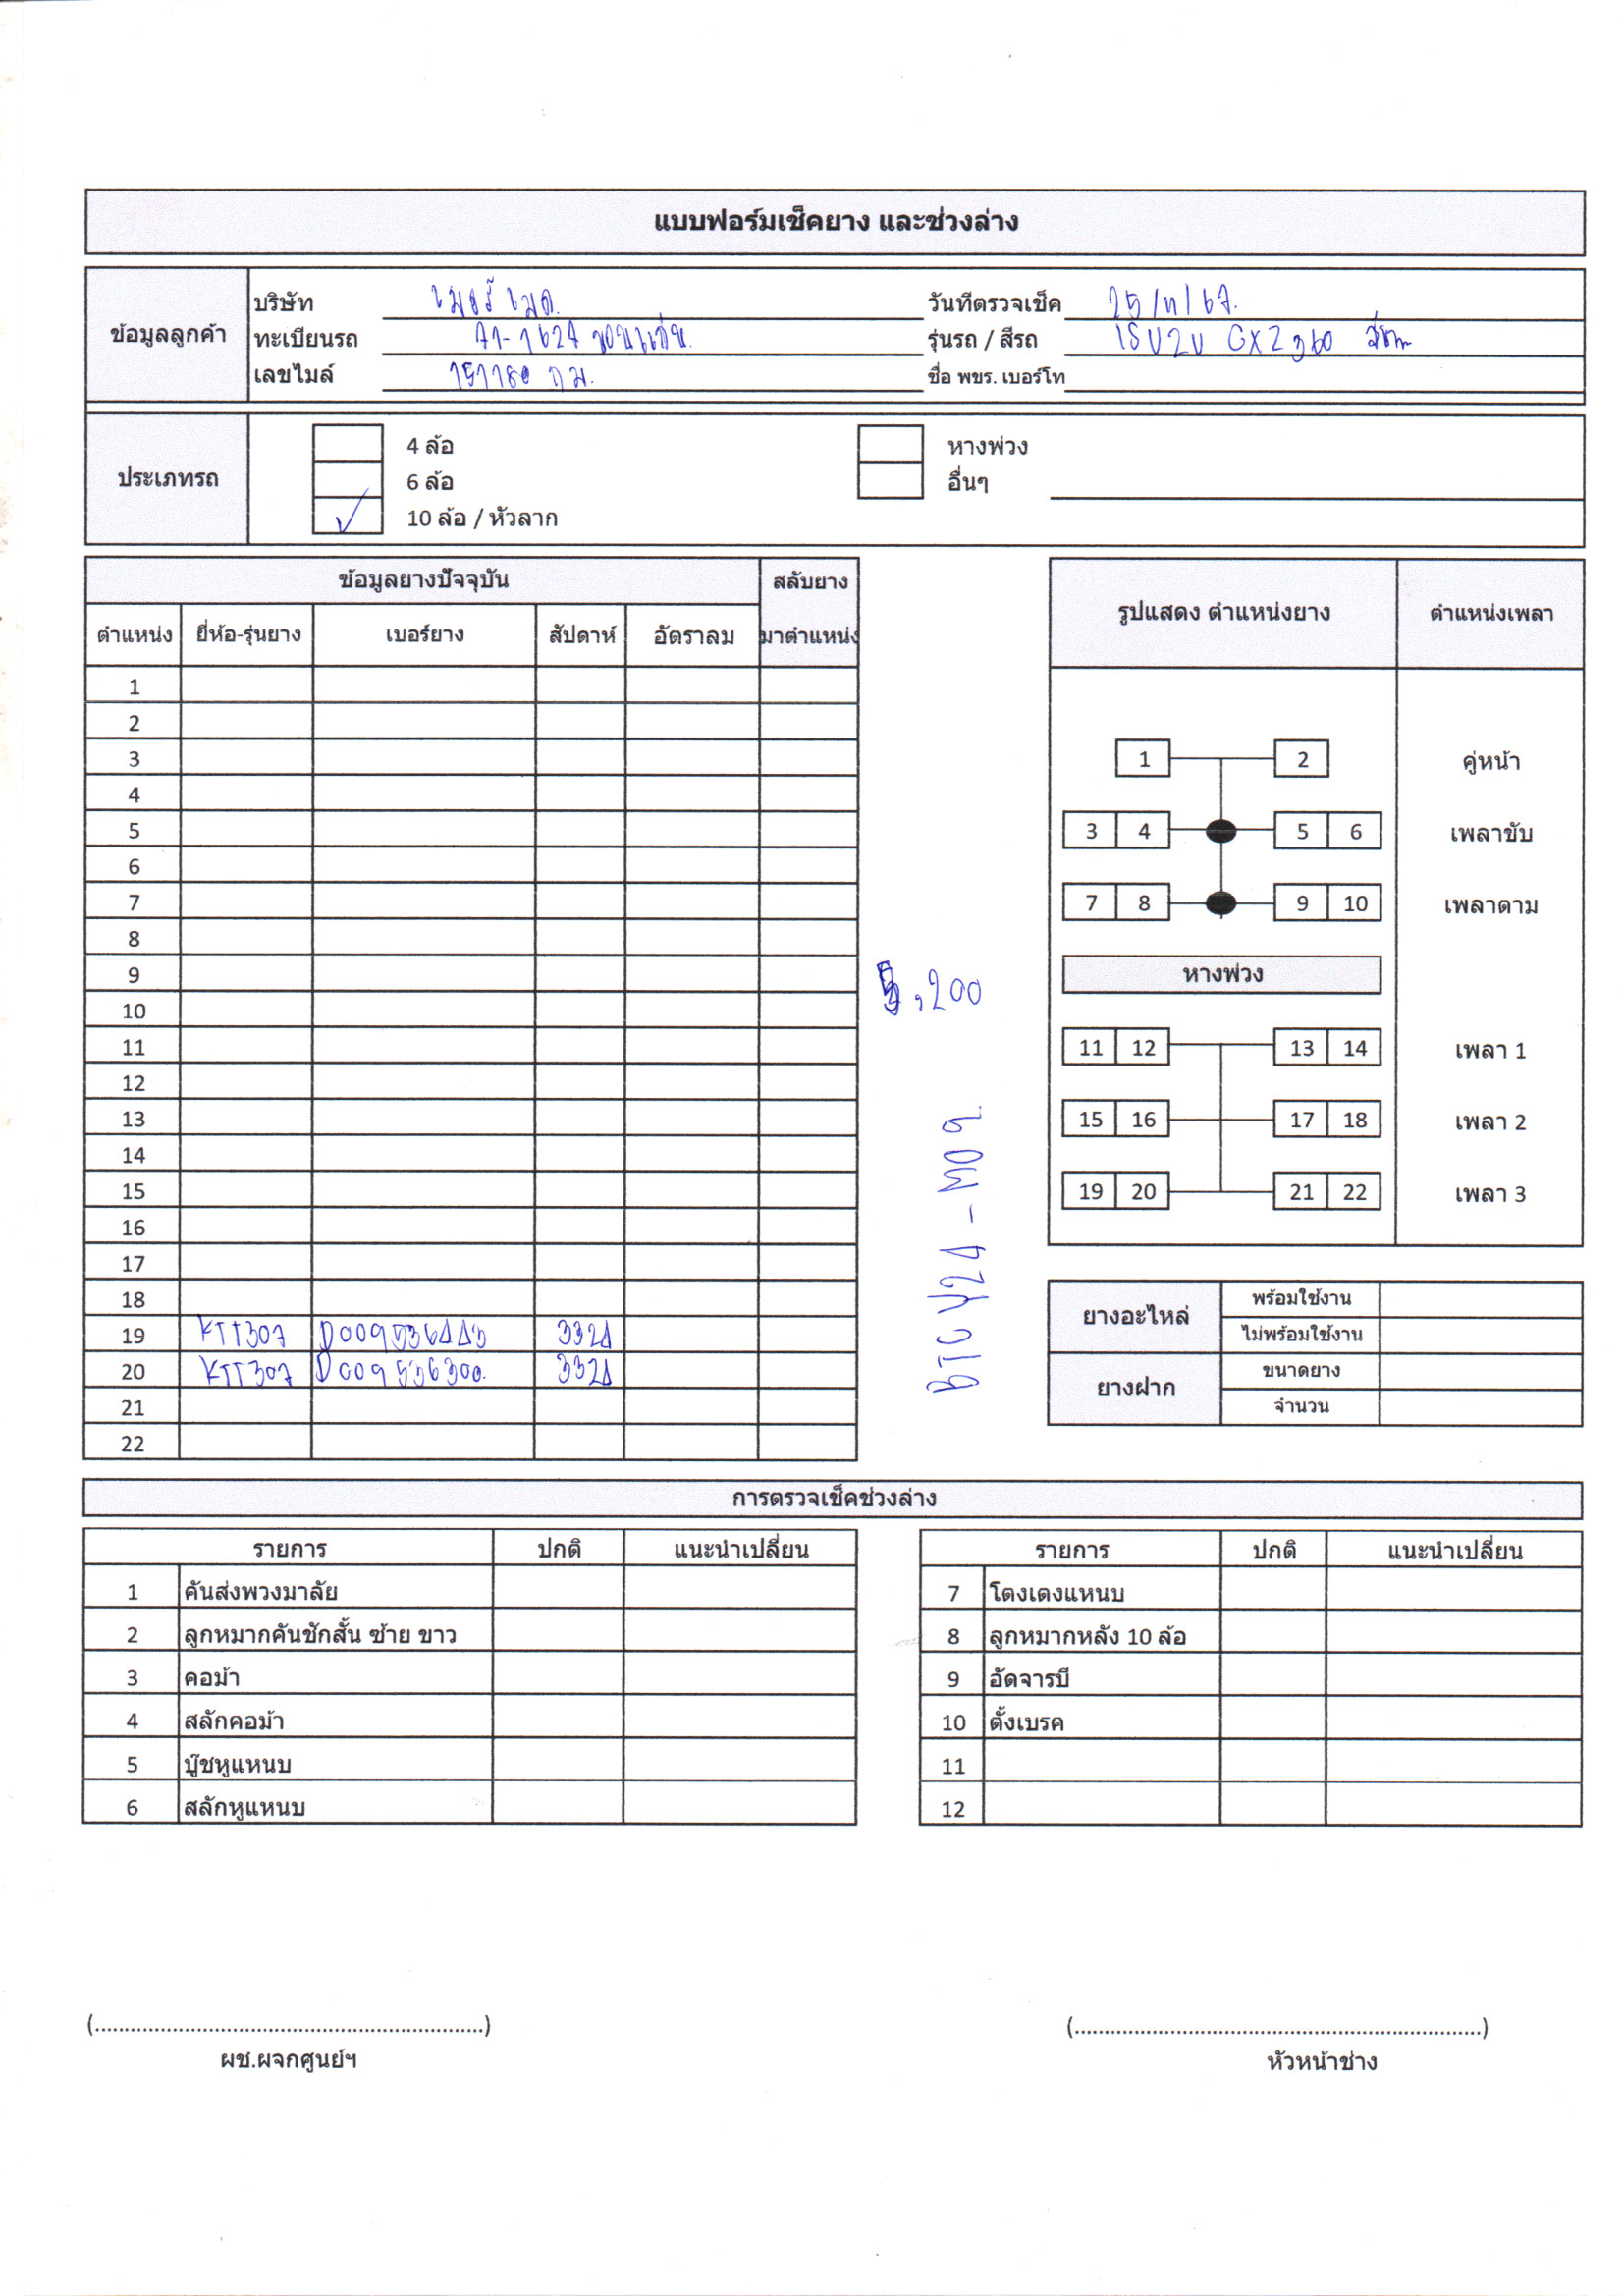 แบบฟอร์มเช็คยาง และช่วงล่าง
ข้อมูลลูกค้า
บริษัท
วันที่ตรวจเช็ค 25/11/67.
ทะเบียนรถ ขอนแก่น
รุ่นรถ / สีรถ ISUZU GXZ 360
เลขไมล์ กม.
ชื่อ พขร. เบอร์โท
ประเภทรถ
4 ล้อ
หางพ่วง
6 ล้อ
อื่นๆ
10 ล้อ / หัวลาก
ข้อมูลยางปัจจุบัน สลับยาง
ตำแหน่ง ยี่ห้อ-รุ่นยาง เบอร์ยาง สัปดาห์ อัตราลม มาตำแหน่ง
1
2
3
4
5
6
7
8
9
10
11
12
13
14
15
16
17
18
19 KTT307 D009536443 3324
20 KTT307 D009536300. 3324
21
22
5,200
BTC Y24 - M09
รูปแสดง ตำแหน่งยาง ตำแหน่งเพลา
1 2 คู่หน้า
3 4 5 6 เพลาขับ
7 8 9 10 เพลาตาม
หางพ่วง
11 12 13 14 เพลา 1
15 16 17 18 เพลา 2
19 20 21 22 เพลา 3
ยางอะไหล่ พร้อมใช้งาน
ไม่พร้อมใช้งาน
ยางฝาก ขนาดยาง
จำนวน
การตรวจเช็คช่วงล่าง
รายการ ปกติ แนะนำเปลี่ยน
1 คันส่งพวงมาลัย
2 ลูกหมากคันชักสั้น ซ้าย ขาว
3 คอม้า
4 สลักคอม้า
5 บู๊ชหูแหนบ
6 สลักหูแหนบ
รายการ ปกติ แนะนำเปลี่ยน
7 โตงเตงแหนบ
8 ลูกหมากหลัง 10 ล้อ
9 อัดจารบี
10 ตั้งเบรค
11
12
(..................................................................)
ผช.ผจกศูนย์ฯ
(......................................................................)
หัวหน้าช่าง